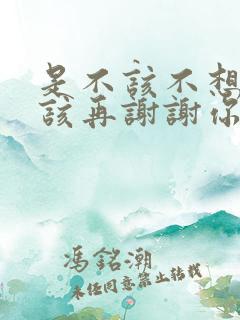 是不該不想
該再謝謝你
馮銘潮
未经同意禁止转载